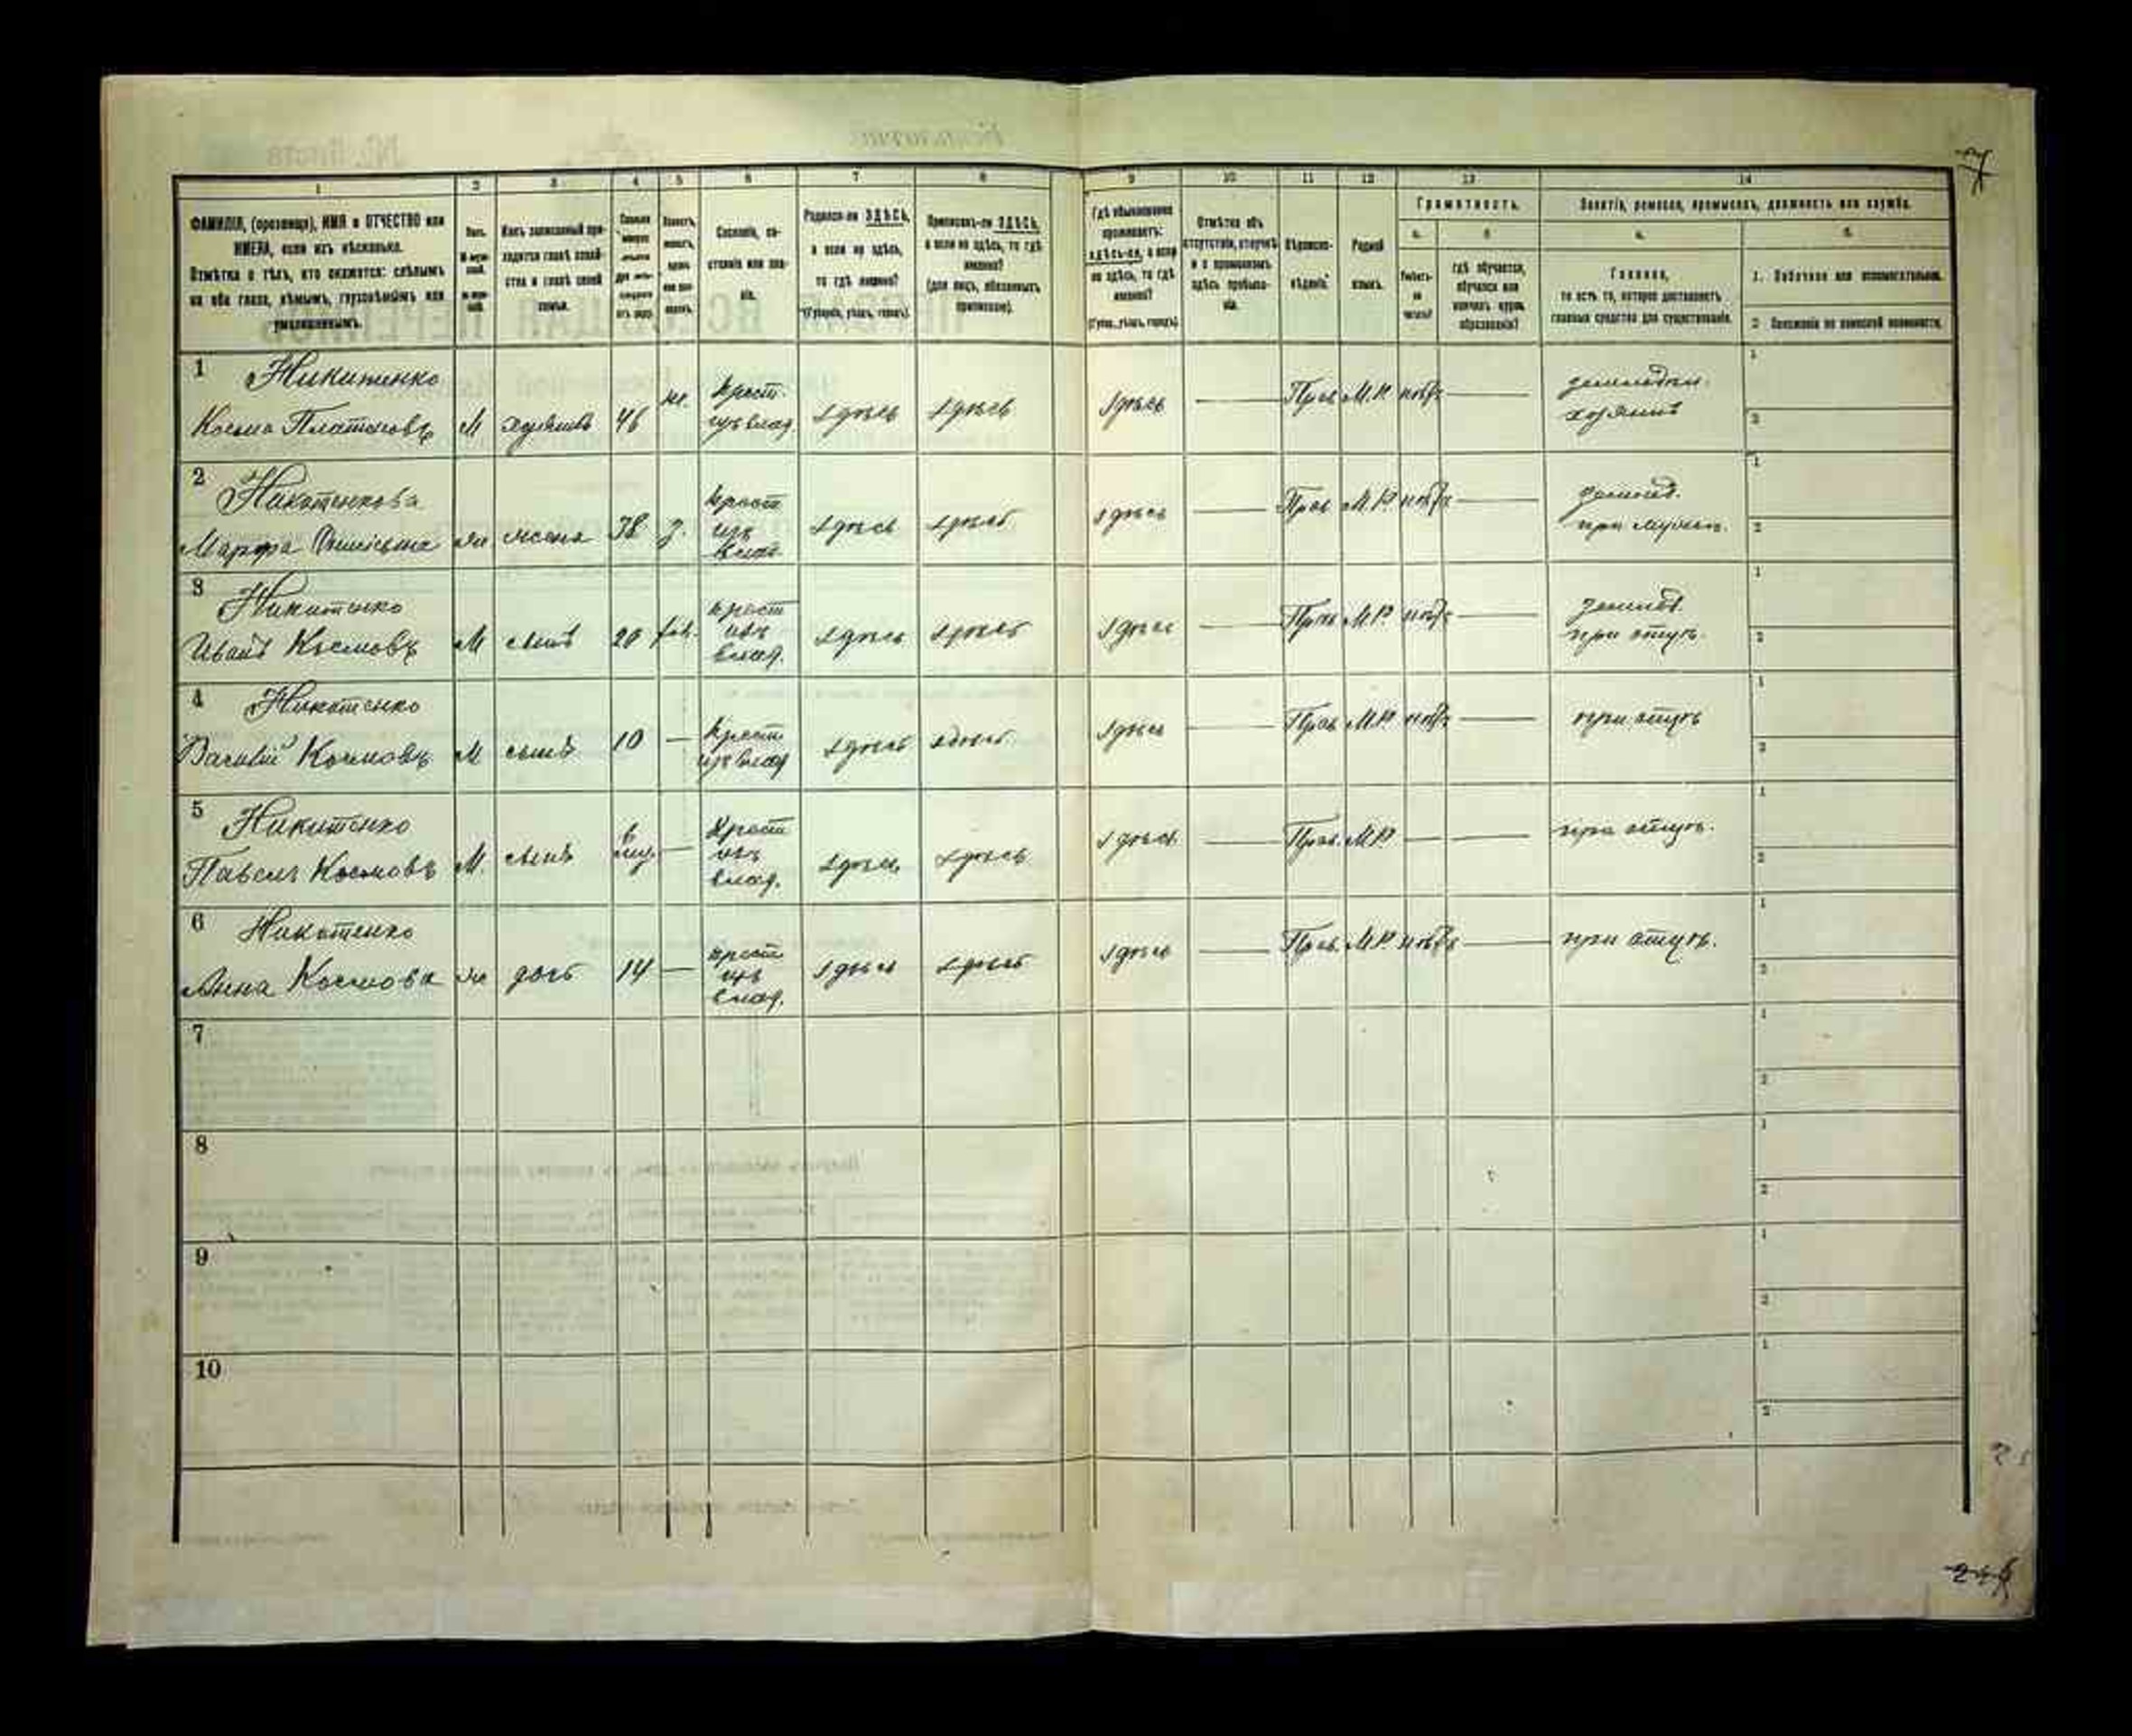 1 2 3 4 5 6 7 8 9 10 11 12 13 14
ФАМИЛІЯ, (прозвище), ИМЯ и ОТЧЕСТВО или
ИМЕНА, если ихъ нѣсколько.
Отмѣтка о тѣхъ, кто окажется: слѣпымъ
на оба глаза, нѣмымъ, глухонѣмымъ или
умалишеннымъ.
Полъ.
Какъ записанный приходится
главѣ хозяйства
и главѣ своей
семьи.
Сословіе, состояніе
или званіе.
Родился-ли ЗДѢСЬ,
а если не здѣсь,
то гдѣ именно?
(Губернія, уѣздъ, городъ).
Приписанъ-ли ЗДѢСЬ,
а если не здѣсь, то гдѣ
именно?
(для лицъ, обязанныхъ
припискою).
Гдѣ обыкновенно
проживаетъ:
здѣсь-ли, а если
не здѣсь, то гдѣ
именно?
(Губ., уѣздъ, городъ)
Отмѣтка объ
отсутствіи, отлучкѣ
и о временномъ
здѣсь пребываніи.
Вѣроисповѣданіе.
Родной
языкъ.
Грамотность.
а. б.
Умѣетъ-ли
читать?
гдѣ обучается,
обучался или
кончилъ курсъ
образованія?
Занятіе, ремесло, промыселъ, должность или служба.
а. б.
Главное,
то есть то, которое доставляетъ
главныя средства для существованія.
1. Побочное или вспомогательное.
2 Положеніе по воинской повинности.
1 Никитенко
Косьма Платоновъ М хозяинъ 46 крест. изъ влад. здѣсь здѣсь здѣсь — Прав М.Р. нѣтъ — хозяинъ
2 Никитенкова
Марфа жена 38 з. крест изъ влад. здѣсь здѣсь здѣсь — Прав М.Р нѣтъ — при мужѣ.
3 Никитенко
Иванъ Космовъ М сынъ 20 крест изъ влад. здѣсь здѣсь здѣсь — Прав М.Р нѣтъ — при отцѣ.
4 Никитенко
Василій Космовъ М сынъ 10 — крест изъ влад здѣсь здѣсь здѣсь — Прав М.Р нѣтъ — при отцѣ
5 Никитенко
Павелъ Космовъ М. сынъ 6 — крест изъ влад. здѣсь здѣсь здѣсь — Прав. М.Р — — при отцѣ.
6 Никитенко
Анна Космова ж дочь 14 — крест изъ влад. здѣсь здѣсь здѣсь — Прав. М.Р нѣтъ — при отцѣ.
7
8
9
10